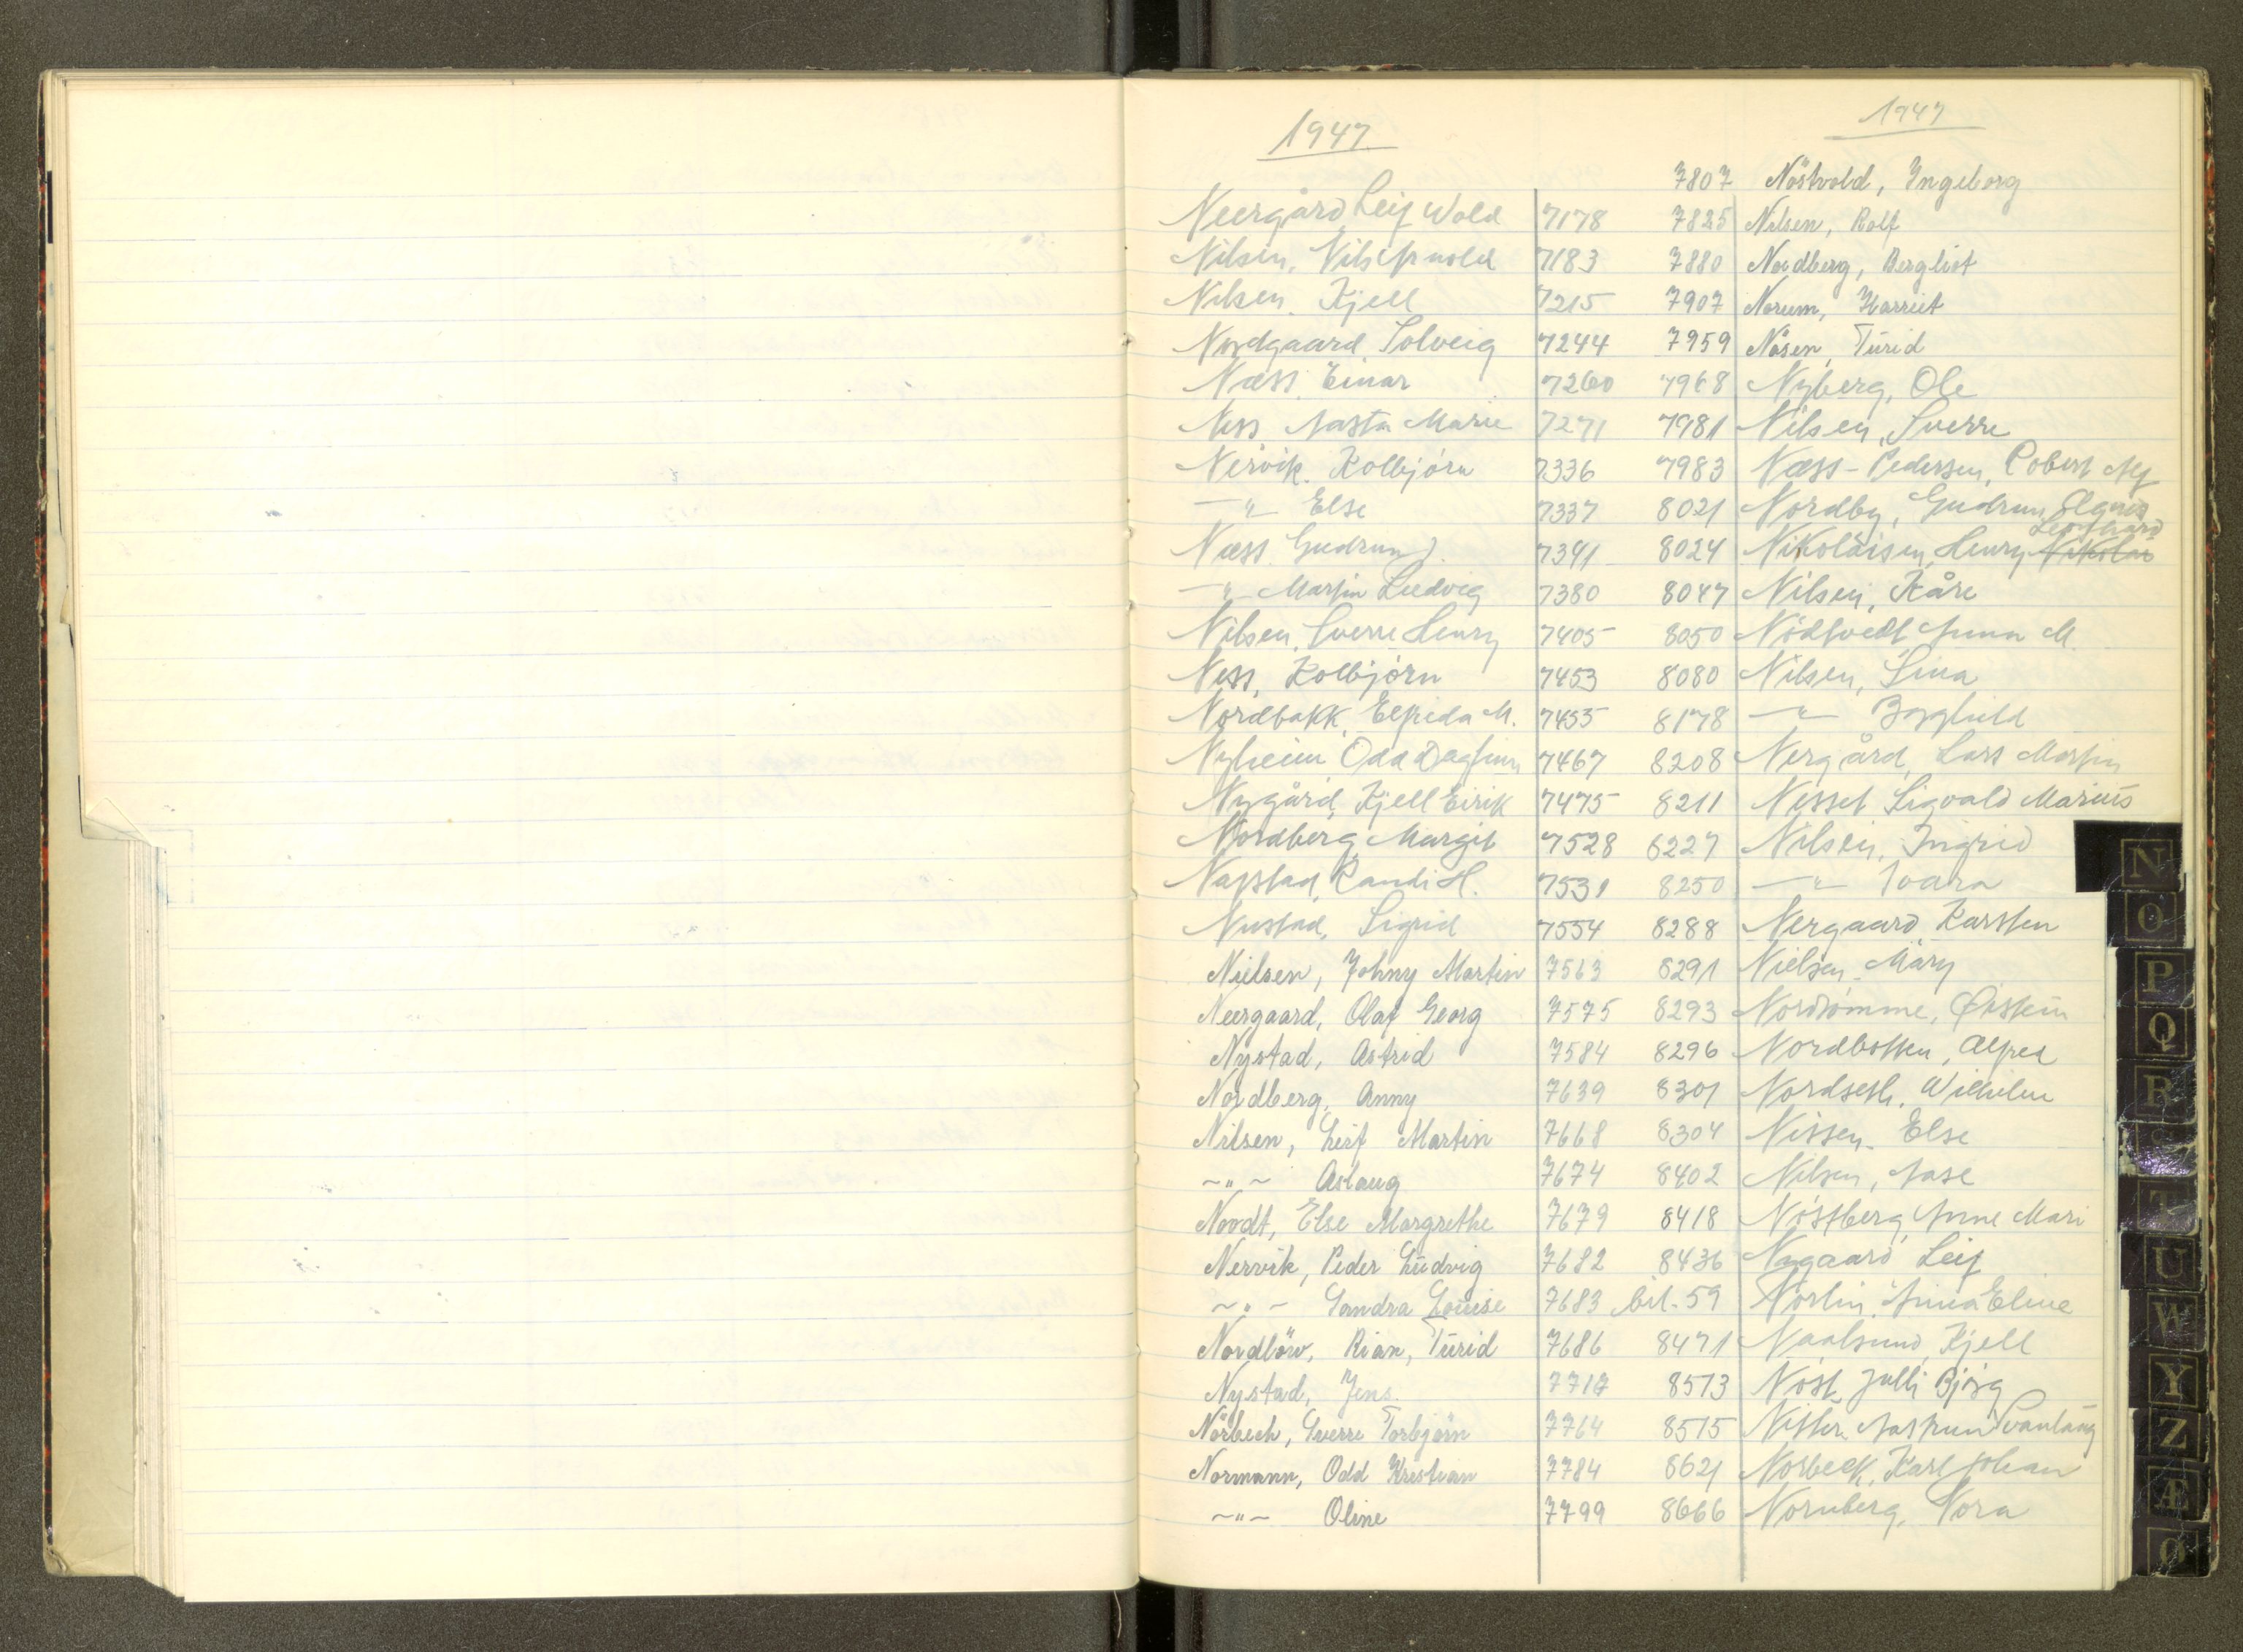 1947
Neergård Leif Wold 7178
Nilsen, Nils Arnold 7183
Nilsen, Kjell 7215
Nordgaard, Solveig 7244
Næss, Einar 7260
Ness Aasta Marie 7271
Nervik, Kolbjørn 7336
—"— Else 7337
Næss Gudrun J. 7341
—"— Martin Ludvig 7380
Nilsen, Sverre Henry 7405
Ness, Kolbjørn 7453
Nordbakk, Elfrida M. 7455
Nyheim Odd Dagfinn 7467
Nygård, Kjell Eirik 7475
Nordberg Margit 7528
Napstad, Randi H. 7531
Nustad, Sigrid 7554
Nielsen, Johny Martin 7563
Neergaard, Olaf Georg 7575
Nystad, Astrid 7584
Nordberg, Anny 7639
Nilsen, Leif Martin 7668
~"~ Aslaug 7674
Noodt, Else Margrethe 7679
Nervik, Peder Ludvig 7682
~"~ Sandra Louise 7683
Nordløw, Rian, Turid 7686
Nystad, Jens 7717
Nörbech, Sverre Torbjörn 7764
Normann, Odd Kristian 7784
~"~ Oline 7799
1947
7807 Nöstvold, Ingeborg
7825 Nilsen, Rolf
7880 Nordberg, Bergliot
7907 Norum, Harriet
7959 Nåsen, Turid
7968 Nyberg, Ole
7981 Nilsen, Sverre
7983 Næss-Pedersen, Robert Alf
8021 Nordby, Gudrun Elgnes
Leonhard
8024 Nikolaisen, Henry Nikolai
8047 Nilsen, Kåre
8050 Nødtvedt Anna M.
8080 Nilsen, Lina
8178 —"— Borghild
8208 Nergård, Lars Martin
8211 Nesset Sigvald Marius
8227 Nilsen, Ingrid
8250 —"— Ivara
8288 Nergaard, Karsten
8291 Nielsen, Mary
8293 Nordtømme, Øistein
8296 Nordbotten, Alfred
8301 Nordseth, Wilhelm
8304 Nissen, Else
8402 Nilsen, Aase
8418 Nøstberg, Anne Mari
8436 Nygaard Leif
bil. 59 Norlin, Anna Eline
8471 Naalsund, Kjell
8513 Nøst, Julli Bjørg
8515 Aasprun Svanlaug
8621 Norbeck, Karl Johan
8666 Nornberg, Nora
N
O
P
Q
R
S
T
U
W
Y
Z
Æ
Ø